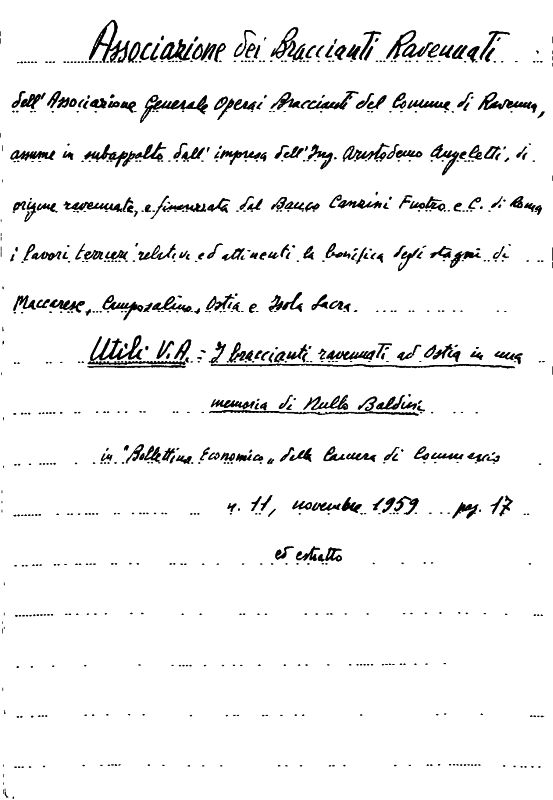 Associazione dei Braccianti Ravennati
dell'Associazione Generale Operai Braccianti del Comune di Ravenna,
assume in subappalto dall'impresa dell'Ing. Aristodemo Angeletti, di
origine ravennate, e finanziata dal Banco Canzini Fustro e C. di Roma
i lavori terrieri relativi ed attinenti la bonifica degli stagni di
Maccarese, Camposalino, Ostia e Isola Sacra.
Utili V.A. - I braccianti ravennati ad Ostia in una
memoria di Nullo Baldini
in "Bollettino Economico" della Camera di Commercio
n. 11, novembre 1959 pag. 17
ed estratto